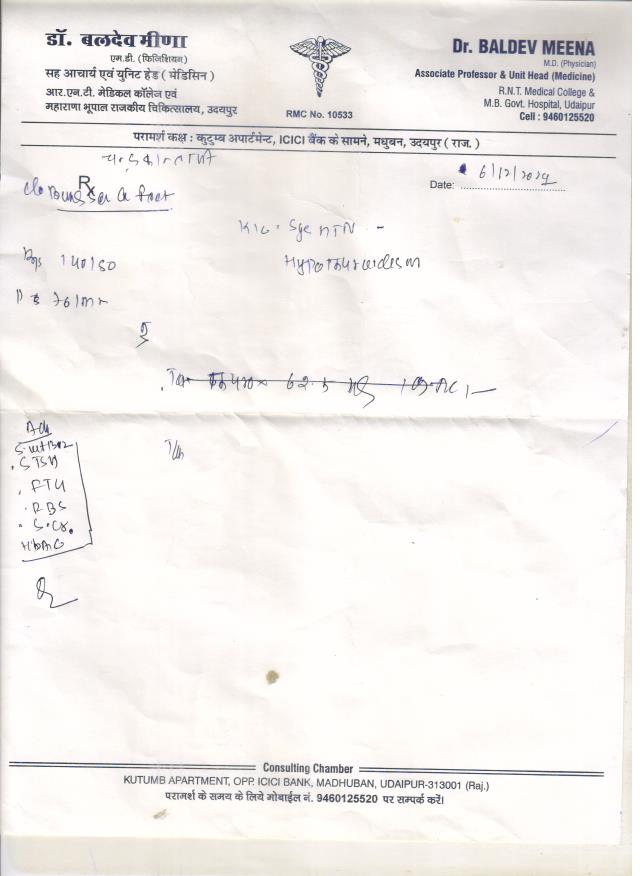 डॉ. बलदेव मीणा
एम.डी. (फिजिशियन)
सह आचार्य एवं यूनिट हेड ( मेडिसिन )
आर.एन.टी. मेडिकल कॉलेज एवं
महाराणा भूपाल राजकीय चिकित्सालय, उदयपुर
RMC No. 10533
Dr. BALDEV MEENA
M.D. (Physician)
Associate Professor & Unit Head (Medicine)
R.N.T. Medical College &
M.B. Govt. Hospital, Udaipur
Cell : 9460125520
परामर्श कक्ष : कुटुम्ब अपार्टमेन्ट, ICICI बैंक के सामने, मधुबन, उदयपुर ( राज. )
Date: 6/12/2024
Rx
feet
HTN
140/80
76/mr
62.5
Adv
S. Vit B12
STSH
RBS
S. Cr.
HbA1C
Tab
Consulting Chamber
KUTUMB APARTMENT, OPP. ICICI BANK, MADHUBAN, UDAIPUR-313001 (Raj.)
परामर्श के समय के लिये मोबाईल नं. 9460125520 पर सम्पर्क करें।